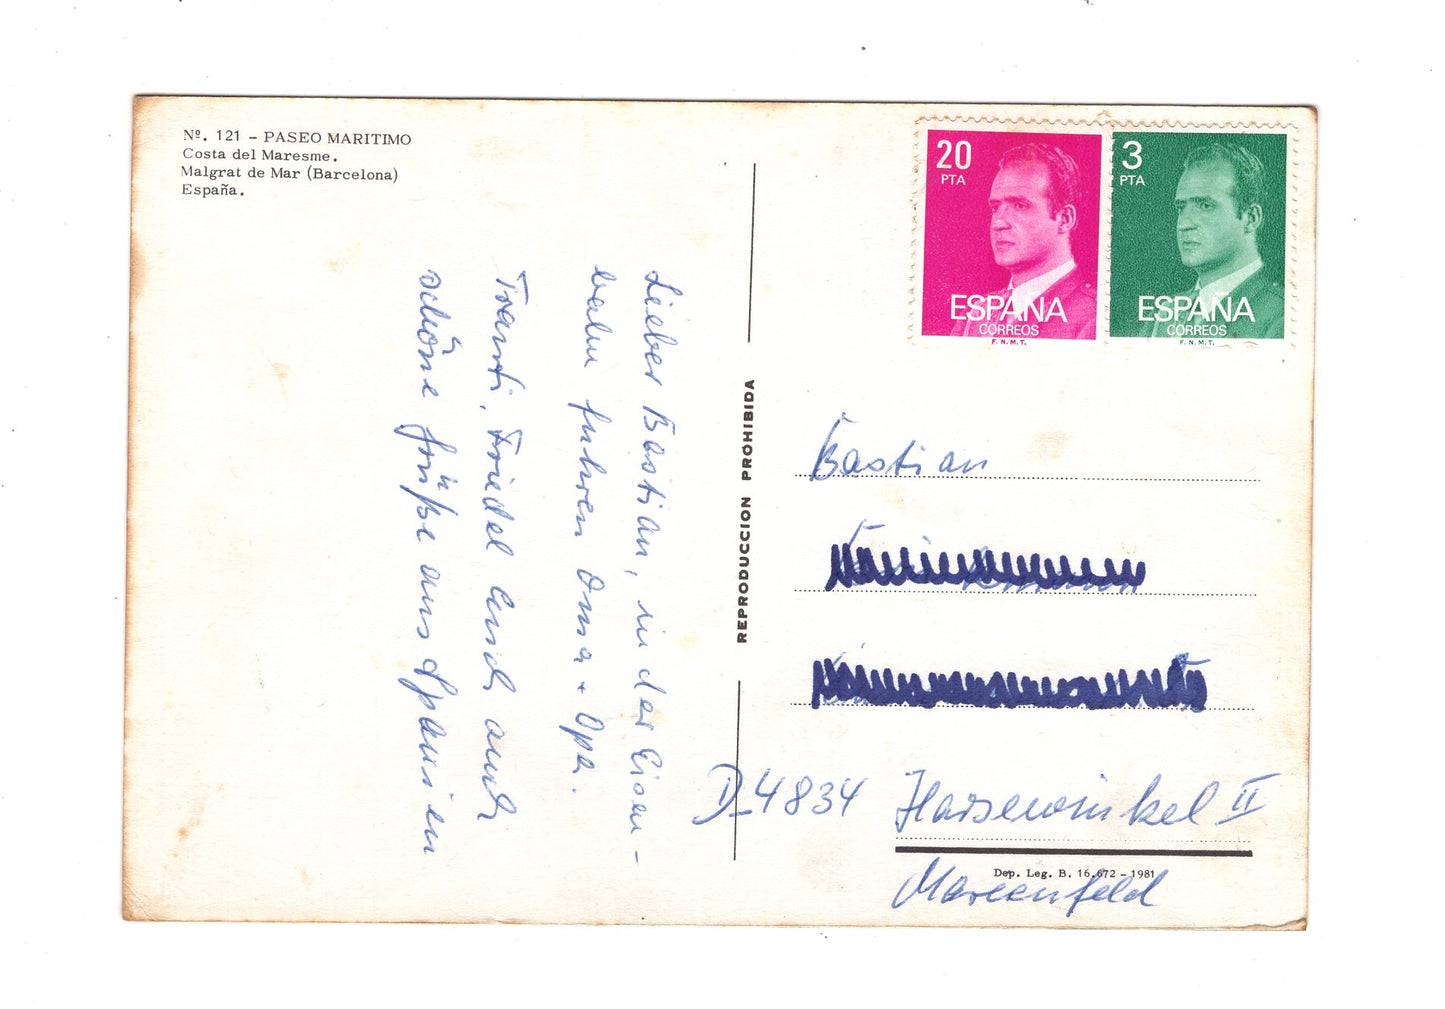 Nº. 121 - PASEO MARITIMO
Costa del Maresme.
Malgrat de Mar (Barcelona)
España.
Lieber Bastian, in der Eisen-
bahn fuhren Oma + Opa.
Traudi, Friedel und auch
schöne Grüße aus Spanien
REPRODUCCION PROHIBIDA
20
PTA
ESPAÑA
CORREOS
F. N. M. T.
3
PTA
ESPAÑA
CORREOS
F. N. M. T.
Bastian
D-4834 Harsewinkel II
Dep. Leg. B. 16.672 - 1981
Marienfeld